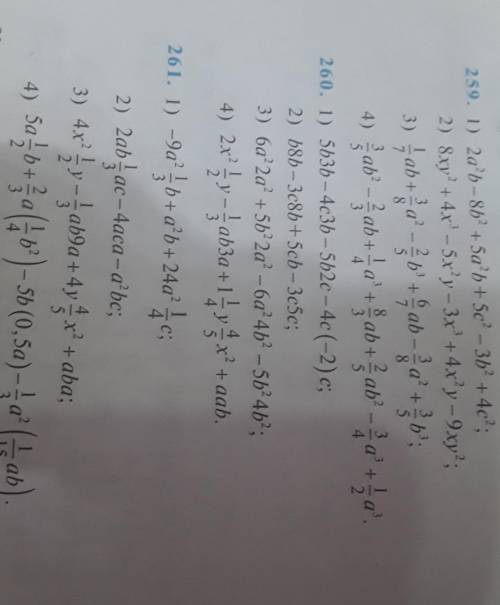 259. 1) 2a²b − 8b³ + 5a²b + 5c² − 3b² + 4c²;
2) 8xy² + 4x³ − 5x²y − 3x³ + 4x²y − 9xy²;
3) 1/7 ab + 3/8 a² − 2/5 b³ + 6/7 ab − 3/8 a² + 3/5 b³;
4) 3/5 ab² − 2/3 ab + 1/4 a³ + 8/3 ab + 2/5 ab² − 3/4 a³ + 1/2 a³.
260. 1) 5b3b − 4c3b − 5b2c − 4c(−2)c;
2) b8b − 3c8b + 5cb − 3c5c;
3) 6a²2a² + 5b²2a² − 6a²4b² − 5b²4b²;
4) 2x² 1/2 y − 1/3 ab3a + 1 1/4 y 4/5 x² + aab.
261. 1) −9a² 1/3 b + a²b + 24a² 1/4 c;
2) 2ab 1/3 ac − 4aca − a²bc;
3) 4x² 1/2 y − 1/3 ab9a + 4y 4/5 x² + aba;
4) 5a 1/2 b + 2/3 a(1/4 b²) − 5b(0,5a) − 1/3 a²(1/15 ab).